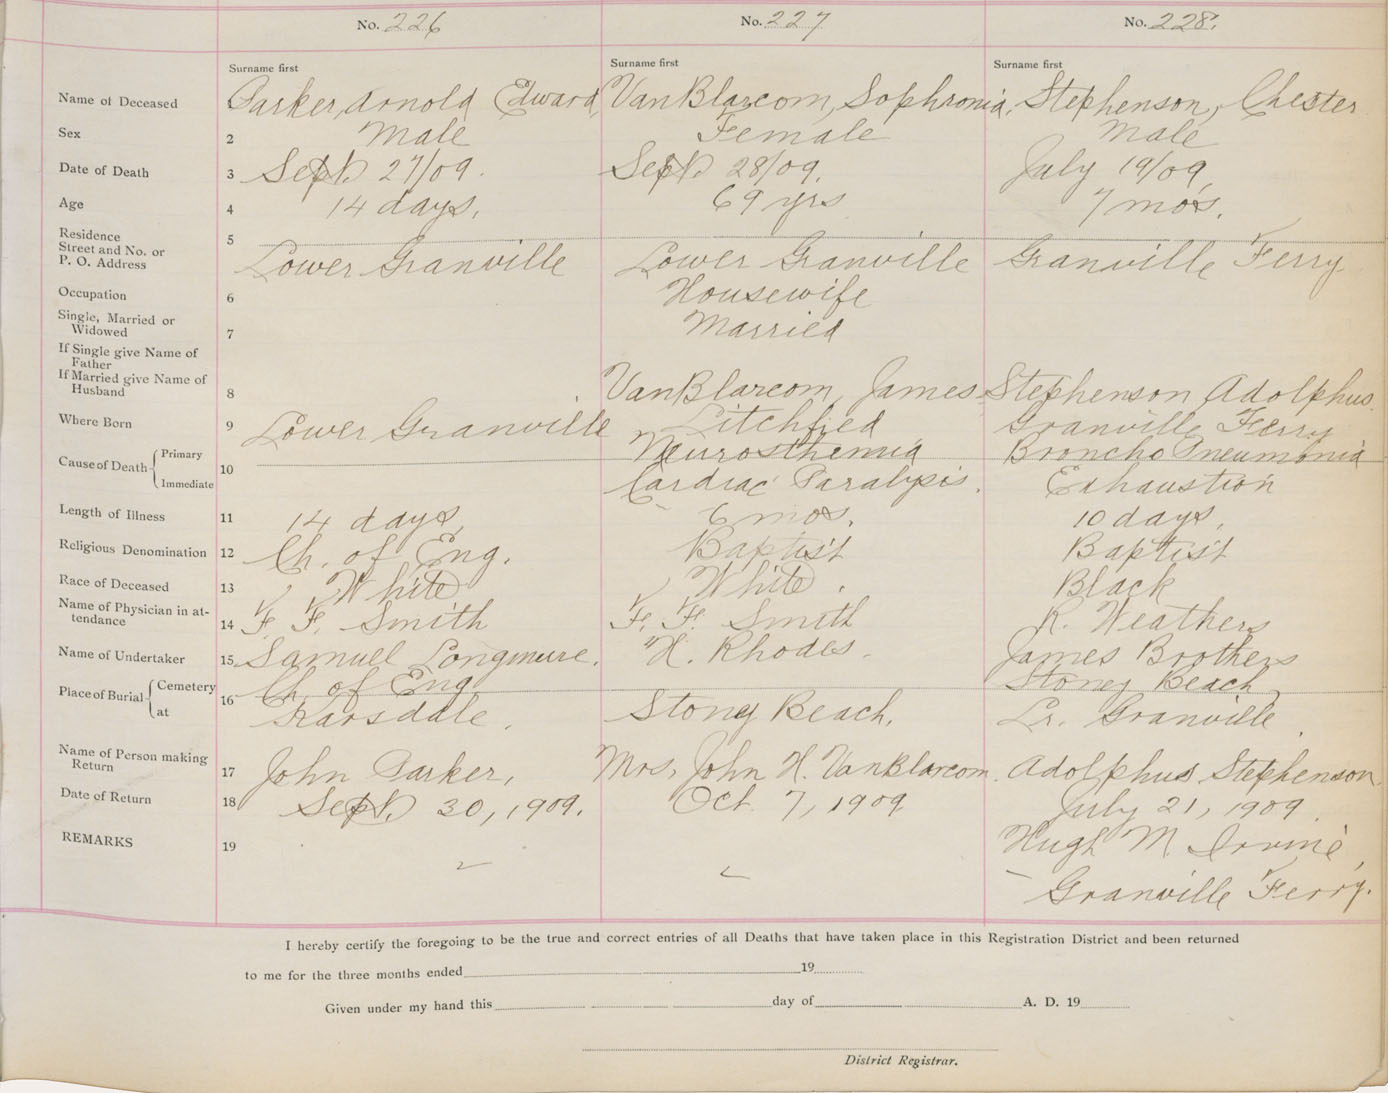 No. 226 No. 227 No. 228.
Surname first Surname first Surname first
Name of Deceased 1 Parker, Arnold Edward, VanBlarcom, Sophronia. Stephenson, Chester
Sex 2 Male Female Male
Date of Death 3 Sept. 27/09. Sept. 28/09. July 19/09.
Age 4 14 days. 69 yrs 7 mos.
Residence
Street and No. or
P. O. Address 5 Lower Granville Lower Granville Granville Ferry
Occupation 6 Housewife
Single, Married or
Widowed 7 Married
If Single give Name of
Father
If Married give Name of
Husband 8 VanBlarcom, James Stephenson Adolphus.
Where Born 9 Lower Granville Litchfied Granville Ferry
Cause of Death Primary 10 Neurosthemia Broncho Pneumonia
Immediate Cardiac Paralypis. Exhaustion
Length of Illness 11 14 days, 6 mos. 10 days,
Religious Denomination 12 Ch. of Eng. Baptist Baptist
Race of Deceased 13 White White. Black
Name of Physician in at-
tendance 14 F. F. Smith F. F. Smith R. Weathers
Name of Undertaker 15 Samuel Longmire. H. Rhodes. James Brothers
Place of Burial Cemetery 16 Ch. of Eng Stoney Beach,
at Karsdale. Stoney Beach. Lr. Granville.
Name of Person making
Return 17 John Parker. Mrs. John H. VanBlarcom. Adolphus Stephenson
Date of Return 18 Sept. 30, 1909. Oct 7, 1909 July 21, 1909.
REMARKS 19 Hugh M. Irvine,
Granville Ferry.
I hereby certify the foregoing to be the true and correct entries of all Deaths that have taken place in this Registration District and been returned
to me for the three months ended 19
Given under my hand this day of A. D. 19
District Registrar.